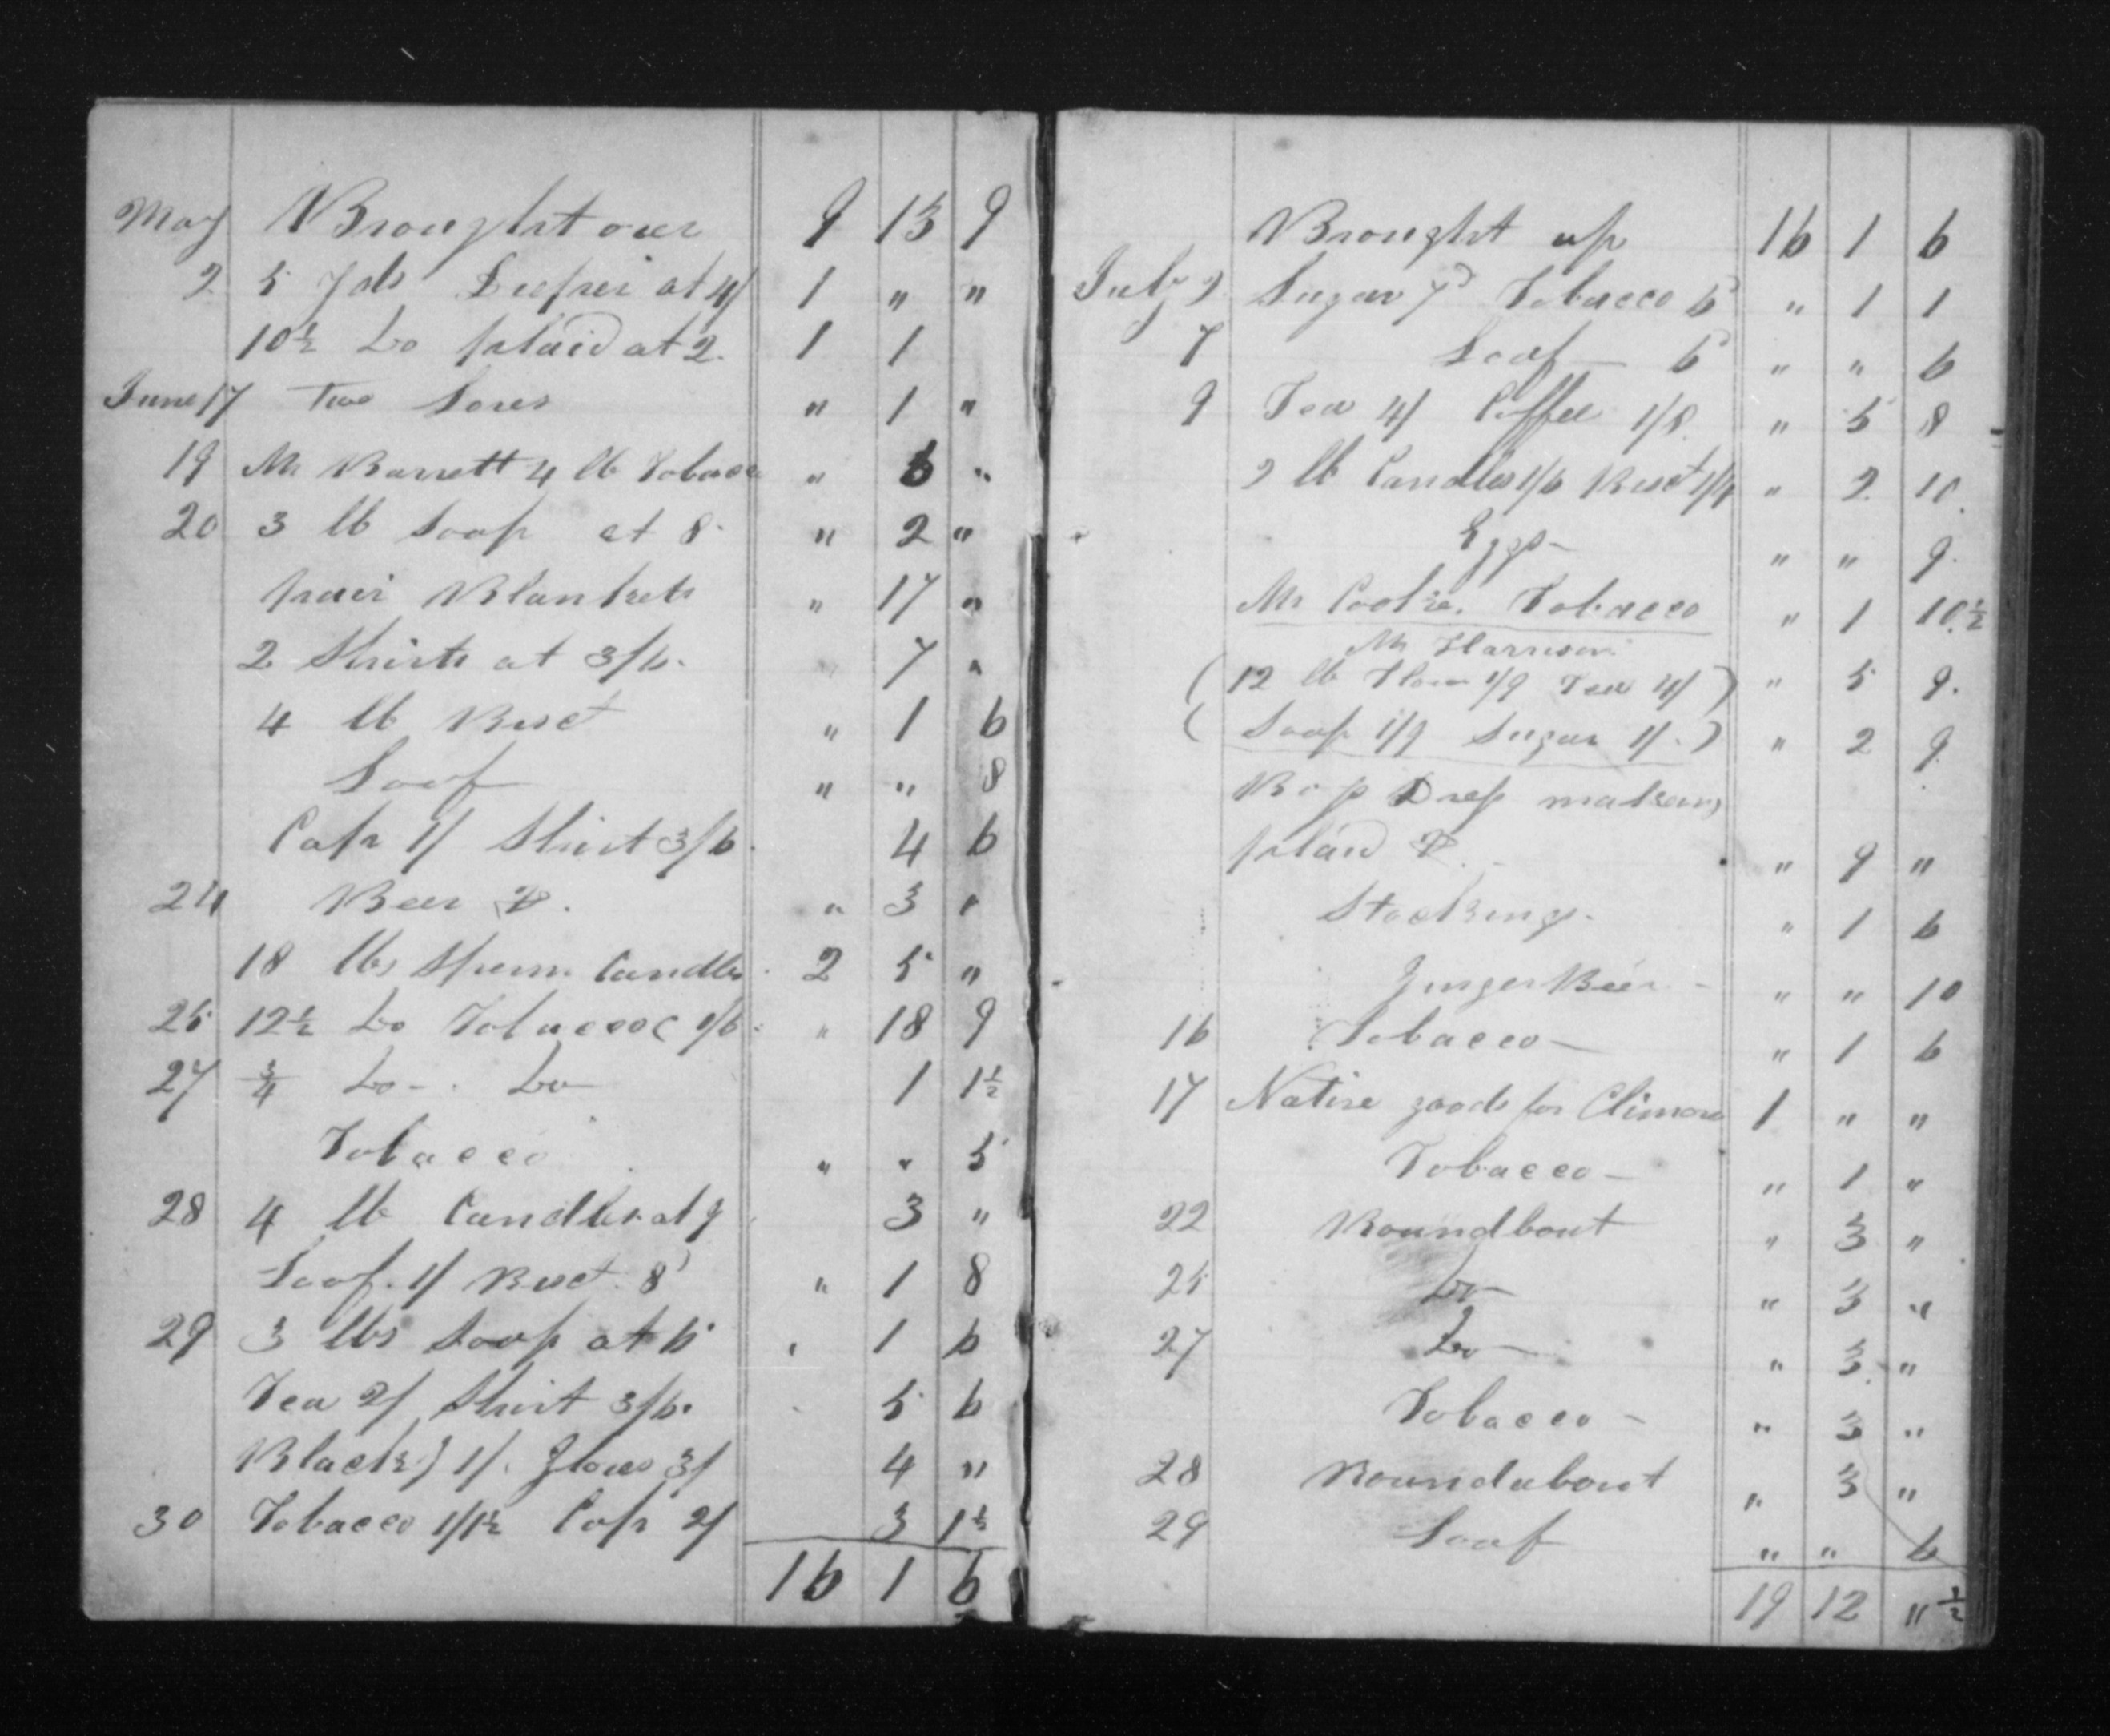 May Brought over 9 13 9
2 5 yds at 4/ 1 " "
10½ Do plaid at 2. 1 1
June 17 Two " 1 "
19 Mr Barrett 4 lb Tobacco " 6 "
20 3 lb Soap at 8 " 2 "
pair Blankets " 17 "
2 Shirts at 3/6. " 7 "
4 lb Bisct " 1 6
Loaf " " 8
Cap 1/ Shirt 3/6. 4 6
24 Beer " 3 "
18 lbs Sperm Candles 2 5 "
25 12½ Do Tobacco 1/6 " 18 9
27 ¾ Do - Do 1 1½
Tobacco " " 5
28 4 lb Candles at 9 3 "
Loaf 1/ Bisct. 8 " 1 8
29 3 lbs Soap at 6 " 1 6
Tea 2/ Shirt 3/6. 5 6
Black 1/. Gloves 3/ 4 "
30 Tobacco 1/1½ Cap 2/ 3 1½
16 1 6
Brought up 16 1 6
July 2 Sugar 7 Tobacco 6 " 1 1
7 Loaf 6 " " 6
9 Tea 4/ Coffee 1/8 " 5 8
2 lb Candles 1/6 Bisct 1/4 " 2 10
Eggs " " 9
Mr Cooke. Tobacco " 1 10½
Mr Harrison
(12 lb Flour 1/9 Tea 4/) " 5 9.
(Soap 1/9 Sugar 1/.) " 2 9
Bop Dress making
plaid " 9 "
Stockings. " 1 6
Ginger Beer " " 10
16 Tobacco " 1 6
17 Native goods for 1 " "
Tobacco " 1 "
22 Roundbout " 3 "
25 Do " 3 "
27 Do " 3 "
Tobacco " 3 "
28 Roundabout " 3 "
29 Loaf " " 6
19 12 " ½